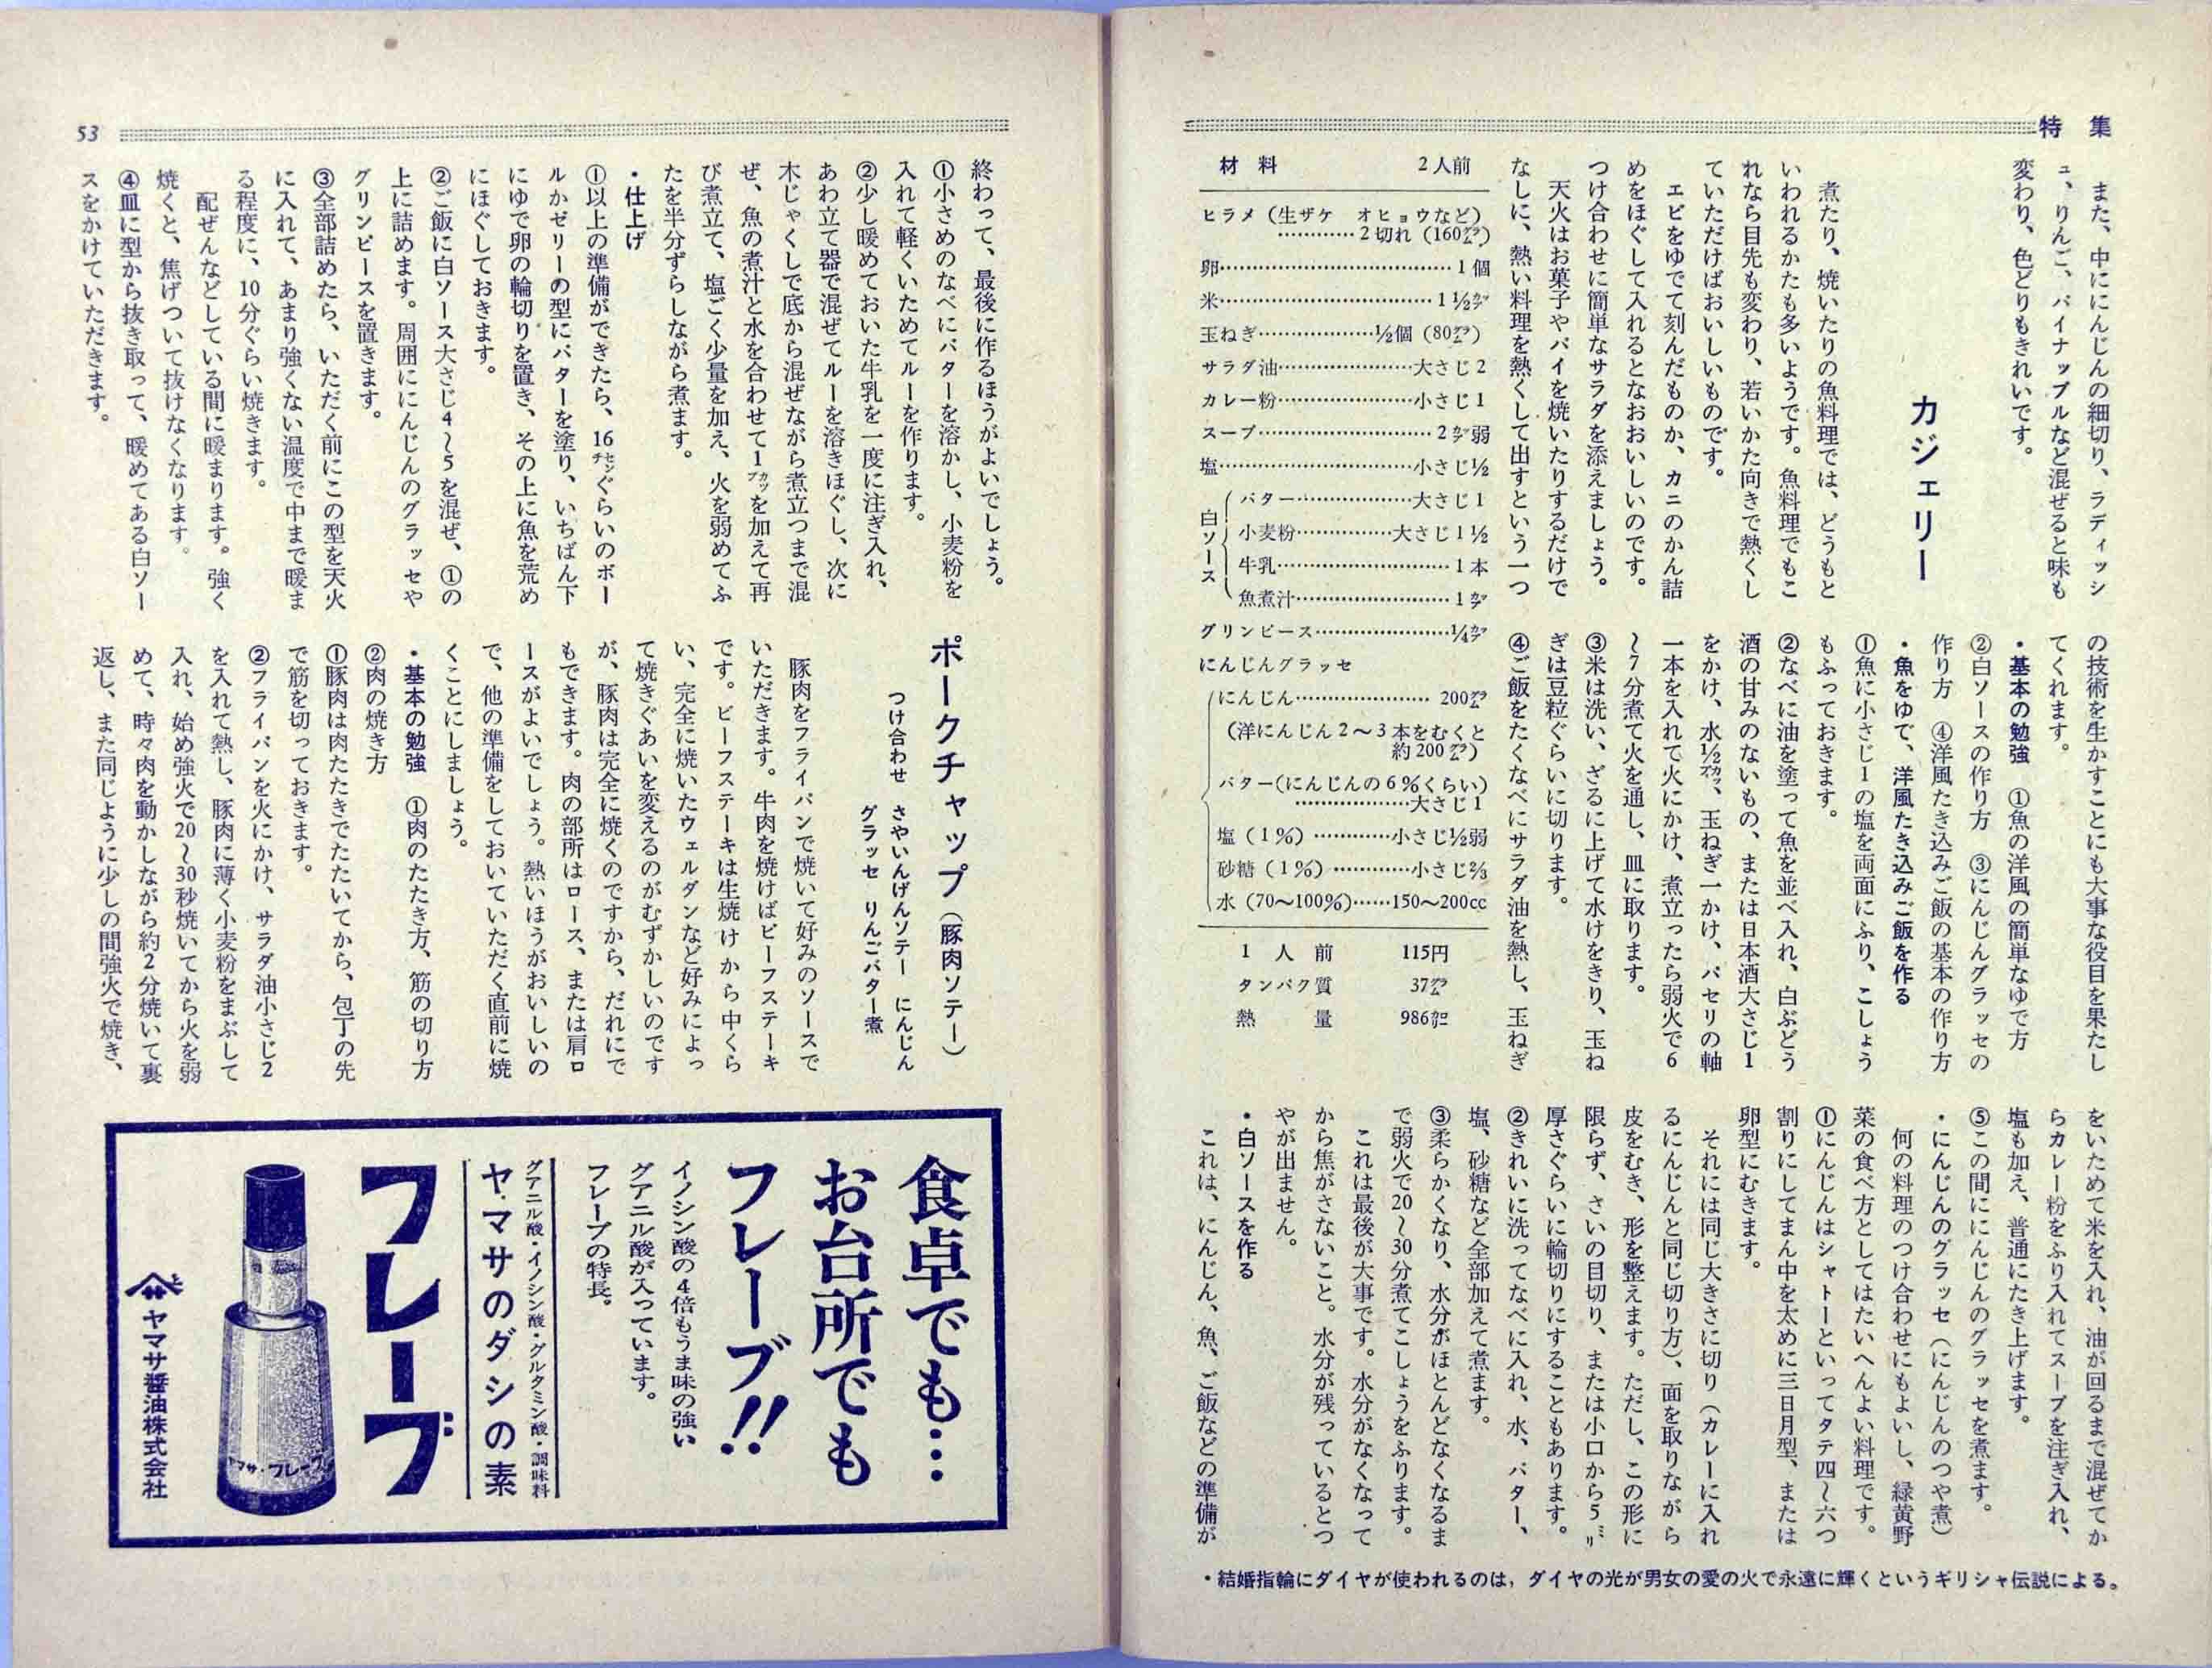 特集
また、中ににんじんの細切り、ラディッシ
ュ、りんご、パイナップルなど混ぜると味も
変わり、色どりもきれいです。
カジェリー
煮たり、焼いたりの魚料理では、どうもと
いわれるかたも多いようです。魚料理でもこ
れなら目先も変わり、若いかた向きで熱くし
ていただけばおいしいものです。
エビをゆでて刻んだものか、カニのかん詰
めをほぐして入れるとなおおいしいのです。
つけ合わせに簡単なサラダを添えましょう。
天火はお菓子やパイを焼いたりするだけで
なしに、熱い料理を熱くして出すという一つ
材料 2人前
ヒラメ（生ザケ オヒョウなど）
…………2切れ（160グラム）
卵………………………………1個
米……………………………1½カップ
玉ねぎ………………½個（80グラム）
サラダ油…………………大さじ2
カレー粉…………………小さじ1
スープ………………………2カップ弱
塩…………………………小さじ½
白ソース
バター………………大さじ1
小麦粉……………大さじ1½
牛乳………………………1本
魚煮汁……………………1カップ
グリンピース…………………¼カップ
にんじんグラッセ
にんじん………………… 200グラム
（洋にんじん2〜3本をむくと
約200グラム）
バター（にんじんの6％くらい）
………………大さじ1
塩（1％）…………小さじ½弱
砂糖（1％）…………小さじ⅔
水（70〜100％）……150〜200cc
1人前 115円
タンパク質 37グラム
熱量 986カロリー
の技術を生かすことにも大事な役目を果たし
てくれます。
・基本の勉強 ①魚の洋風の簡単なゆで方
②白ソースの作り方 ③にんじんグラッセの
作り方 ④洋風たき込みご飯の基本の作り方
・魚をゆで、洋風たき込みご飯を作る
①魚に小さじ1の塩を両面にふり、こしょう
もふっておきます。
②なべに油を塗って魚を並べ入れ、白ぶどう
酒の甘みのないもの、または日本酒大さじ1
をかけ、水½カップ、玉ねぎ一かけ、パセリの軸
一本を入れて火にかけ、煮立ったら弱火で6
〜7分煮て火を通し、皿に取ります。
③米は洗い、ざるに上げて水けをきり、玉ね
ぎは豆粒ぐらいに切ります。
④ご飯をたくなべにサラダ油を熱し、玉ねぎ
をいためて米を入れ、油が回るまで混ぜてか
らカレー粉をふり入れてスープを注ぎ入れ、
塩も加え、普通にたき上げます。
⑤この間ににんじんのグラッセを煮ます。
・にんじんのグラッセ（にんじんのつや煮）
何の料理のつけ合わせにもよいし、緑黄野
菜の食べ方としてはたいへんよい料理です。
①にんじんはシャトーといってタテ四〜六つ
割りにしてまん中を太めに三日月型、または
卵型にむきます。
それには同じ大きさに切り（カレーに入れ
るにんじんと同じ切り方）、面を取りながら
皮をむき、形を整えます。ただし、この形に
限らず、さいの目切り、または小口から5ミリ
厚さぐらいに輪切りにすることもあります。
②きれいに洗ってなべに入れ、水、バター、
塩、砂糖など全部加えて煮ます。
③柔らかくなり、水分がほとんどなくなるま
で弱火で20〜30分煮てこしょうをふります。
これは最後が大事です。水分がなくなって
から焦がさないこと。水分が残っているとつ
やが出ません。
・白ソースを作る
これは、にんじん、魚、ご飯などの準備が
・結婚指輪にダイヤが使われるのは，ダイヤの光が男女の愛の火で永遠に輝くというギリシャ伝説による。
53
終わって、最後に作るほうがよいでしょう。
①小さめのなべにバターを溶かし、小麦粉を
入れて軽くいためてルーを作ります。
②少し暖めておいた牛乳を一度に注ぎ入れ、
あわ立て器で混ぜてルーを溶きほぐし、次に
木じゃくしで底から混ぜながら煮立つまで混
ぜ、魚の煮汁と水を合わせて1カップを加えて再
び煮立て、塩ごく少量を加え、火を弱めてふ
たを半分ずらしながら煮ます。
・仕上げ
①以上の準備ができたら、16センチぐらいのボー
ルかゼリーの型にバターを塗り、いちばん下
にゆで卵の輪切りを置き、その上に魚を荒め
にほぐしておきます。
②ご飯に白ソース大さじ4〜5を混ぜ、①の
上に詰めます。周囲ににんじんのグラッセや
グリンピースを置きます。
③全部詰めたら、いただく前にこの型を天火
に入れて、あまり強くない温度で中まで暖ま
る程度に、10分ぐらい焼きます。
配ぜんなどしている間に暖まります。強く
焼くと、焦げついて抜けなくなります。
④皿に型から抜き取って、暖めてある白ソー
スをかけていただきます。
ポークチャップ（豚肉ソテー）
つけ合わせ さやいんげんソテー にんじん
グラッセ りんごバター煮
豚肉をフライパンで焼いて好みのソースで
いただきます。牛肉を焼けばビーフステーキ
です。ビーフステーキは生焼けから中くら
い、完全に焼いたウェルダンなど好みによっ
て焼きぐあいを変えるのがむずかしいのです
が、豚肉は完全に焼くのですから、だれにで
もできます。肉の部所はロース、または肩ロ
ースがよいでしょう。熱いほうがおいしいの
で、他の準備をしておいていただく直前に焼
くことにしましょう。
・基本の勉強 ①肉のたたき方、筋の切り方
②肉の焼き方
①豚肉は肉たたきでたたいてから、包丁の先
で筋を切っておきます。
②フライパンを火にかけ、サラダ油小さじ2
を入れて熱し、豚肉に薄く小麦粉をまぶして
入れ、始め強火で20〜30秒焼いてから火を弱
めて、時々肉を動かしながら約2分焼いて裏
返し、また同じように少しの間強火で焼き、
食卓でも…
お台所でも
フレーブ!!
イノシン酸の4倍もうま味の強い
グアニル酸が入っています。
フレーブの特長。
グアニル酸・イノシン酸・グルタミン酸・調味料
ヤマサのダシの素
フレーブ
ヤマサ・フレーブ
ヤマサ醤油株式会社